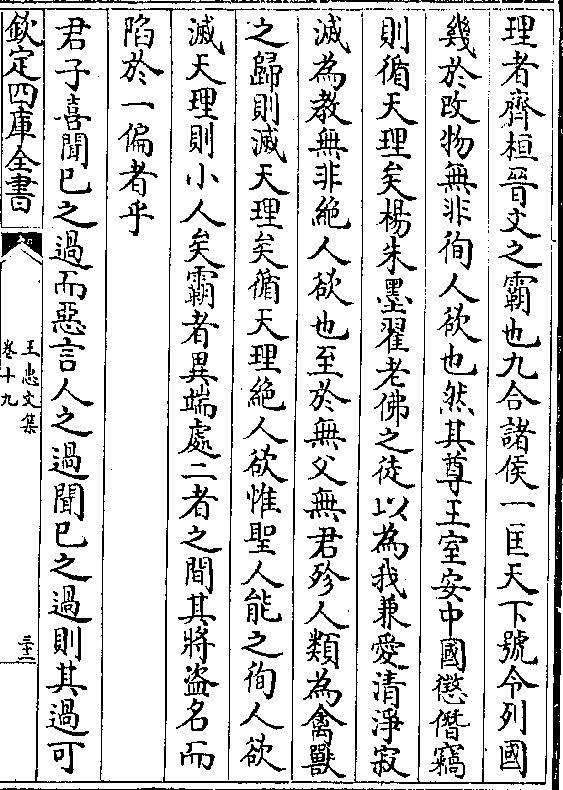 理者齊桓晉文之霸也九合諸侯一匡天下號令列國
幾於改物無非徇人欲也然其尊王室安中國懲僭竊
則循天理矣楊朱墨翟老佛之徒以為我兼愛清淨寂
滅為教無非絶人欲也至於無父無君殄人類為禽獸
之歸則滅天理矣循天理絶人欲惟聖人能之徇人欲
滅天理則小人矣霸者異端處二者之間其將盗名而
陷於一偏者乎
君子喜聞已之過而惡言人之過聞已之過則其過可
欽定四庫全書
王忠文集
卷十九
三十二